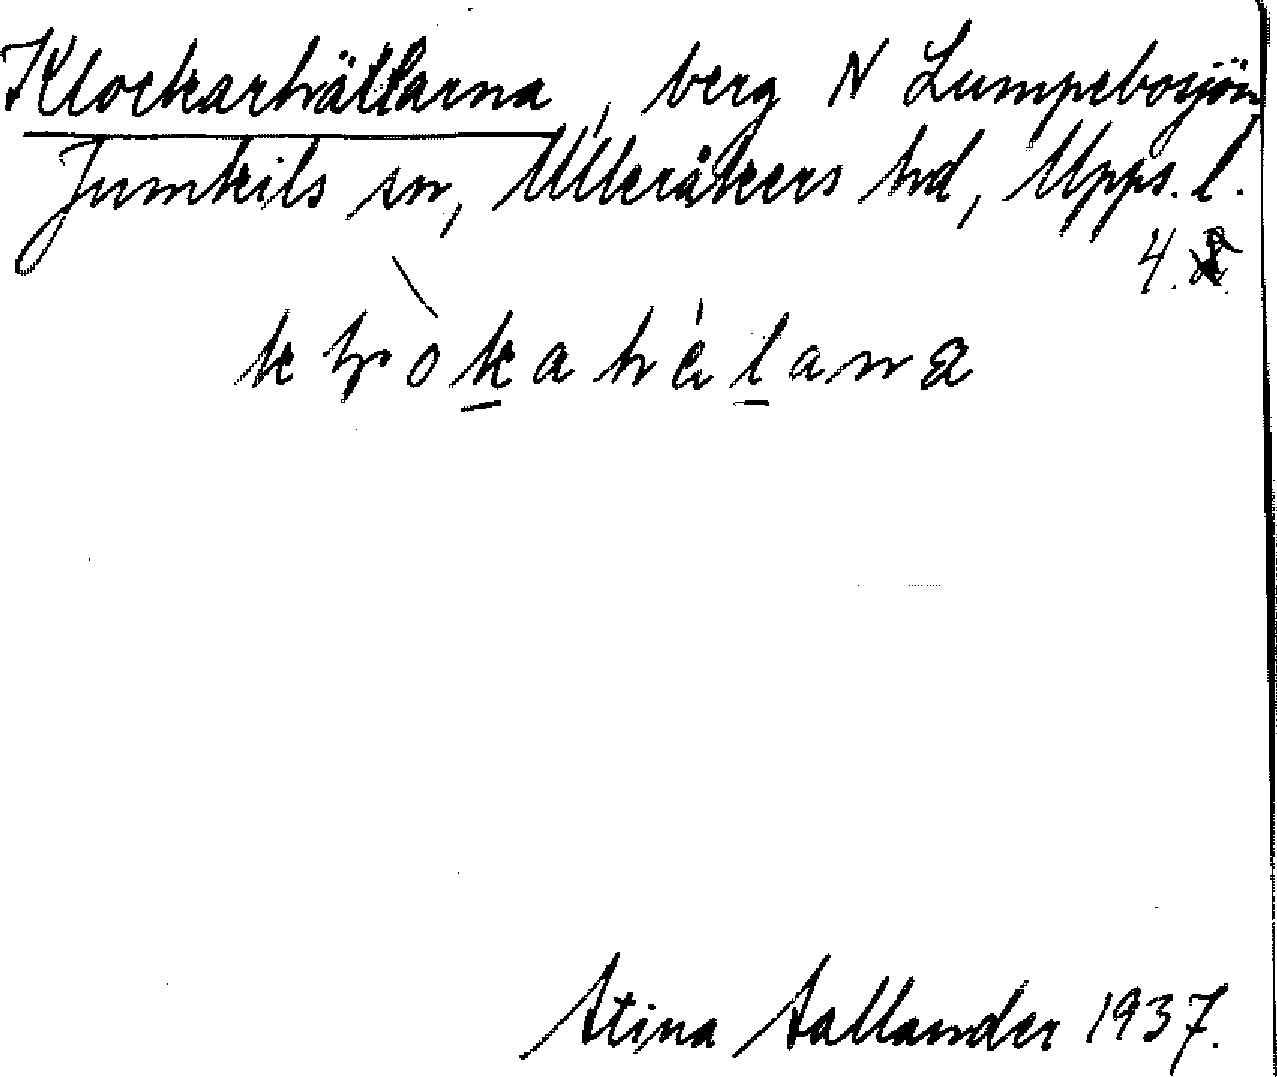 Klockarhällarna, berg N Lumpebosjön
Jumkils sn, Ulleråkers hd, Upps. l.
4.
Stina Sallander 1937.